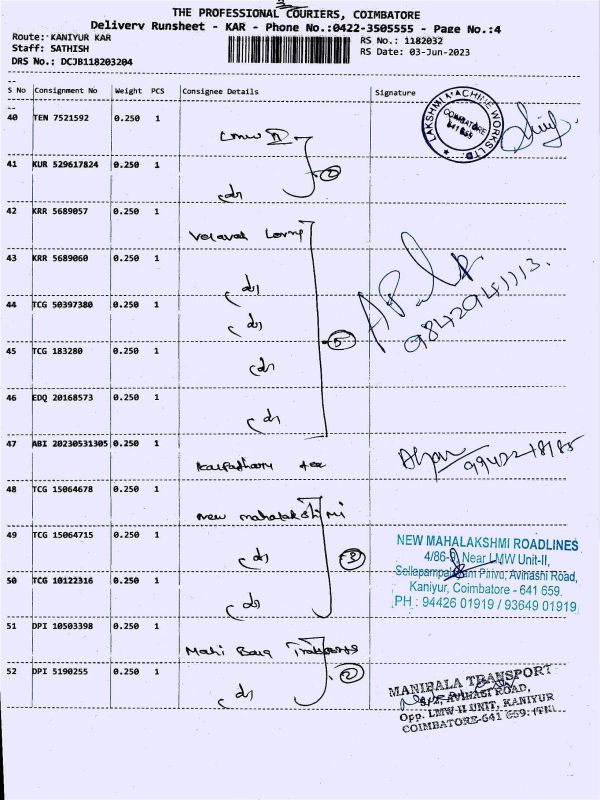 THE PROFESSIONAL COURIERS, COIMBATORE
Delivery Runsheet - KAR - Phone No.:0422-3505555 - Page No.:4
Route: KANIYUR KAR
RS No.: 1182032
Staff: SATHISH
RS Date: 03-Jun-2023
DRS No.: DCJB118203204
S No Consignment No Weight PCS Consignee Details Signature
40 TEN 7521592 0.250 1
LAKSHMI MACHINE WORKS LTD.
COIMBATORE
641 659
41 KUR 529617824 0.250 1
2
42 KRR 5689057 0.250 1
43 KRR 5689060 0.250 1
9842941113.
44 TCG 50397380 0.250 1
5
45 TCG 183280 0.250 1
46 EDQ 20168573 0.250 1
47 ABI 20230531305 0.250 1
48 TCG 15064678 0.250 1 New mahalakshmi
49 TCG 15064715 0.250 1
3
50 TCG 10122316 0.250 1
NEW MAHALAKSHMI ROADLINES
Near LMW Unit-II,
Avinashi Road,
Kaniyur, Coimbatore - 641 659.
PH : 94426 01919 / 93649 01919
51 DPI 10503398 0.250 1
52 DPI 5190255 0.250 1
2
MANIBALA TRANSPORT
AVINASI ROAD,
Opp. LMW-II UNIT, KANIYUR
COIMBATORE-641 659. (TN)